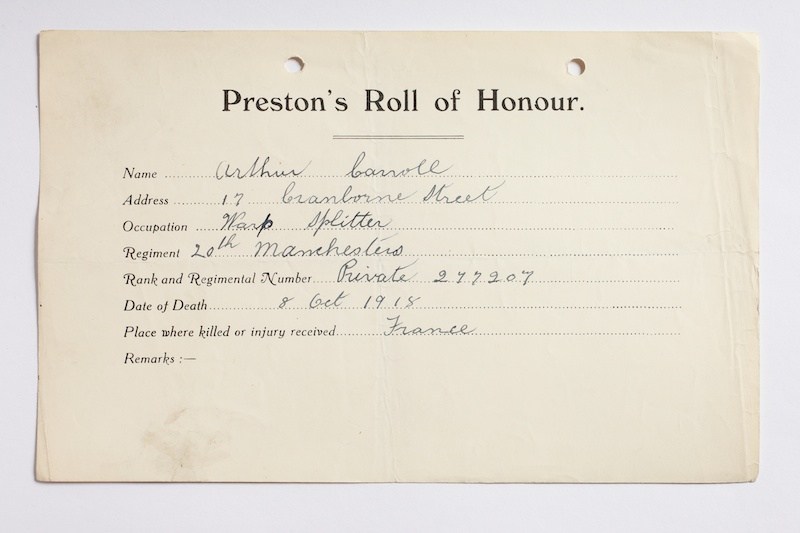 Preston's Roll of Honour.
Name Arthur Carroll
Address 17 Cranborne Street
Occupation Warp Splitter
Regiment 20th Manchesters
Rank and Regimental Number Private 277207
Date of Death 8 Oct 1918
Place where killed or injury received France
Remarks :—